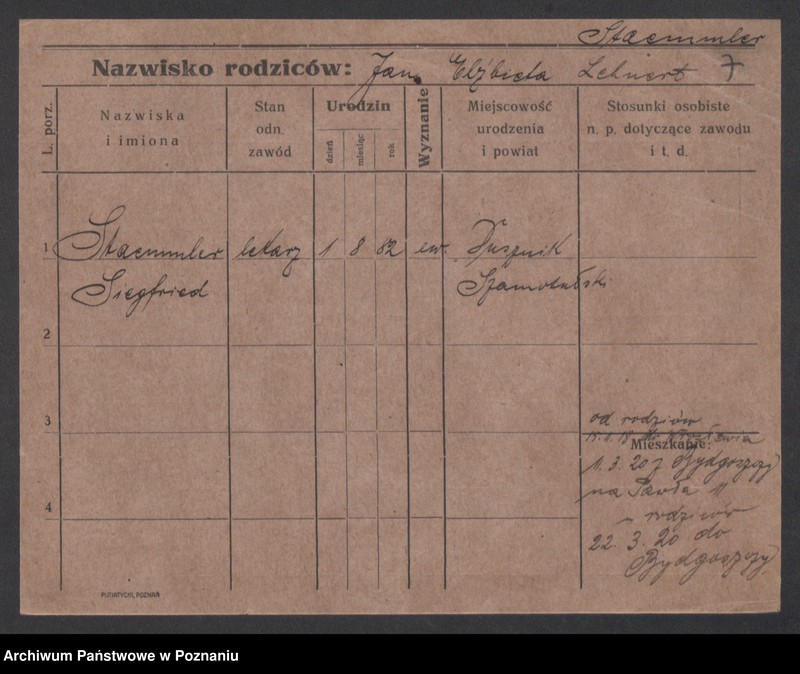 Staemmler
Nazwisko rodziców: Jan, Elżbieta Lehnert 7
L. porz.
Nazwiska
i imiona
Stan
odn.
zawód
Urodzin
dzień
miesiąc
rok
Wyznanie
Miejscowość
urodzenia
i powiat
Stosunki osobiste
n. p. dotyczące zawodu
i t. d.
1 Staemmler lekarz 1 8 82 ew. Dusznik
Siegfried Szamotulski
2
3
od rodziców
Mieszkanie:
11. 3. 20 z Bydgoszczy
4
na Pawła 11
u rodziców
22. 3. 20 do
Bydgoszczy
PUTIATYCKI, POZNAŃ
Archiwum Państwowe w Poznaniu